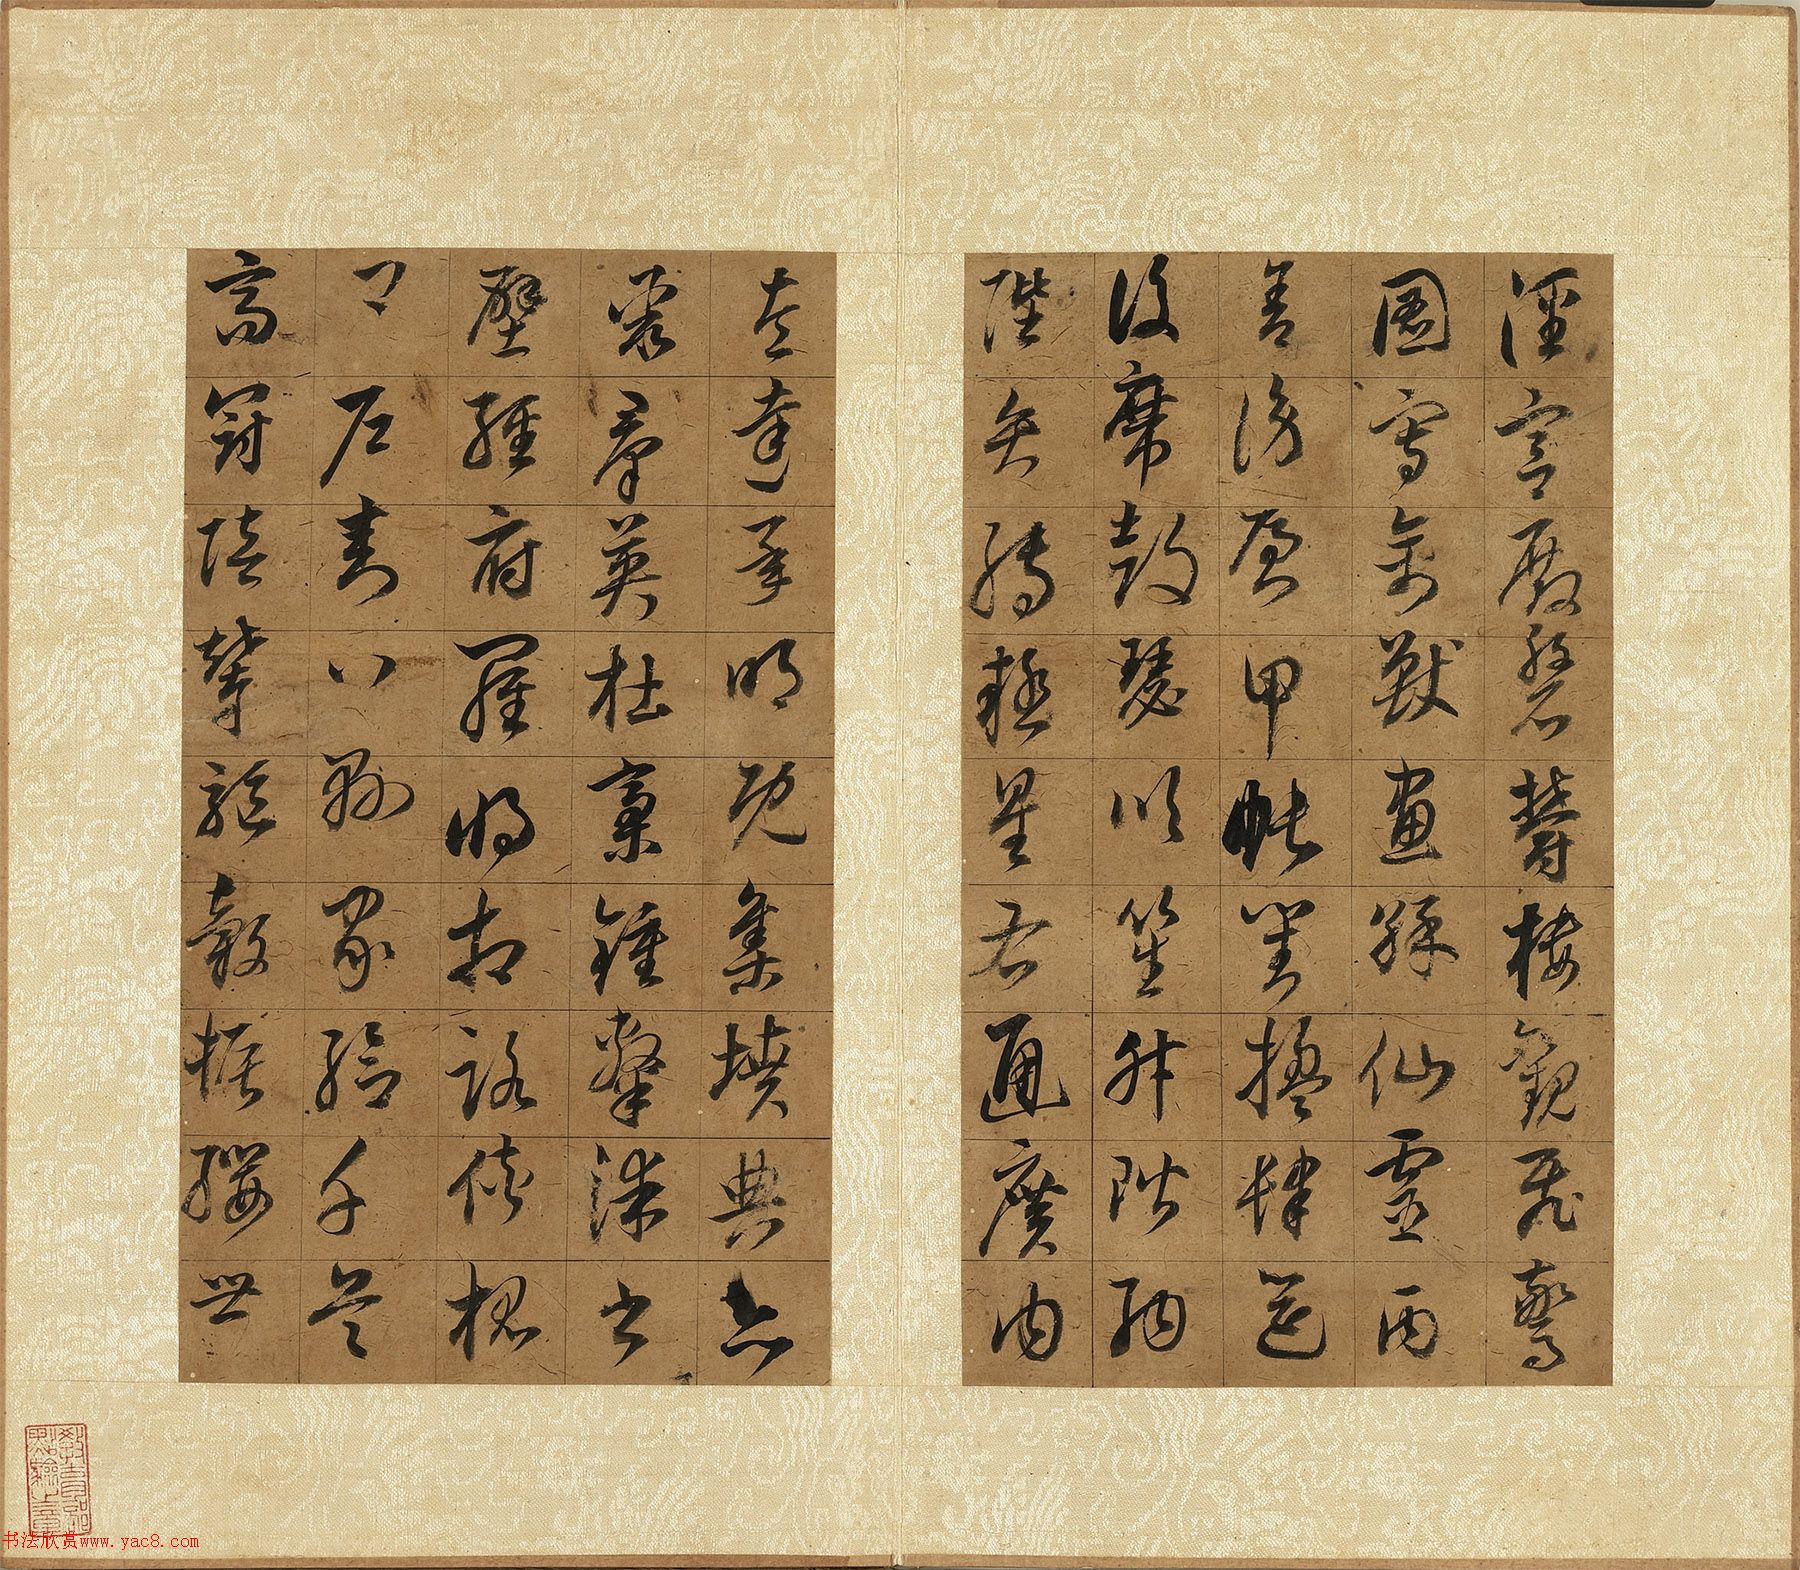 涇宮殿盤鬱樓觀飛驚
圖寫禽獸畫綵仙靈丙
舍傍啟甲帳對楹肆筵
設席鼓瑟吹笙升階納
陛弁轉疑星右通廣內
左達承明既集墳典亦
聚群英杜稾鍾隸漆書
壁經府羅將相路俠槐
卿戶封八縣家給千兵
高冠陪輦驅轂振纓世
教育部
點驗之章
书法欣赏www.yac8.com